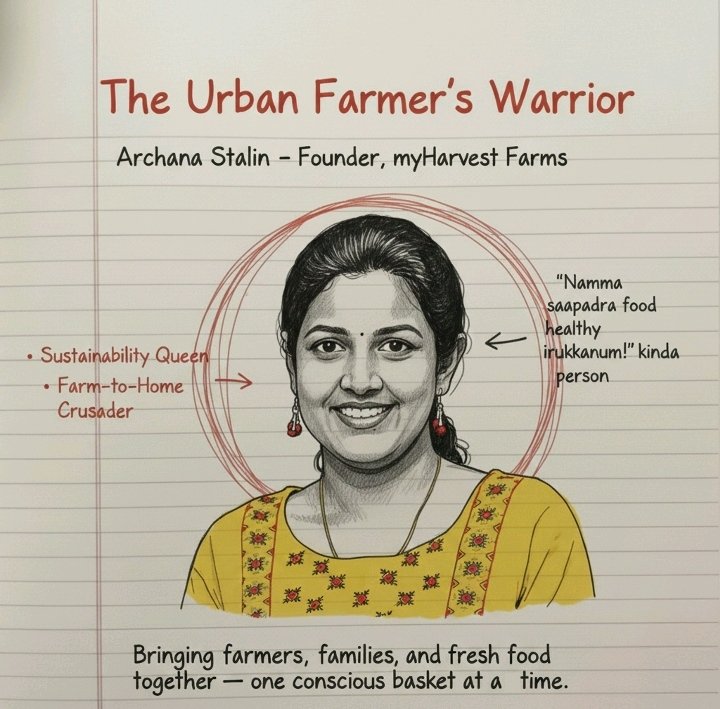 The Urban Farmer's Warrior
Archana Stalin – Founder, myHarvest Farms
"Namma
saapadra food
healthy
irukkanum!" kinda
person
• Sustainability Queen
• Farm-to-Home
Crusader
Bringing farmers, families, and fresh food
together — one conscious basket at a time.